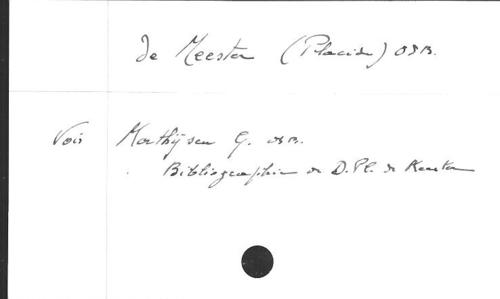 de Meester (Placide) OSB.
Voir Matthijsen G. OSB.
Bibliographie de D. Pl. de Meester